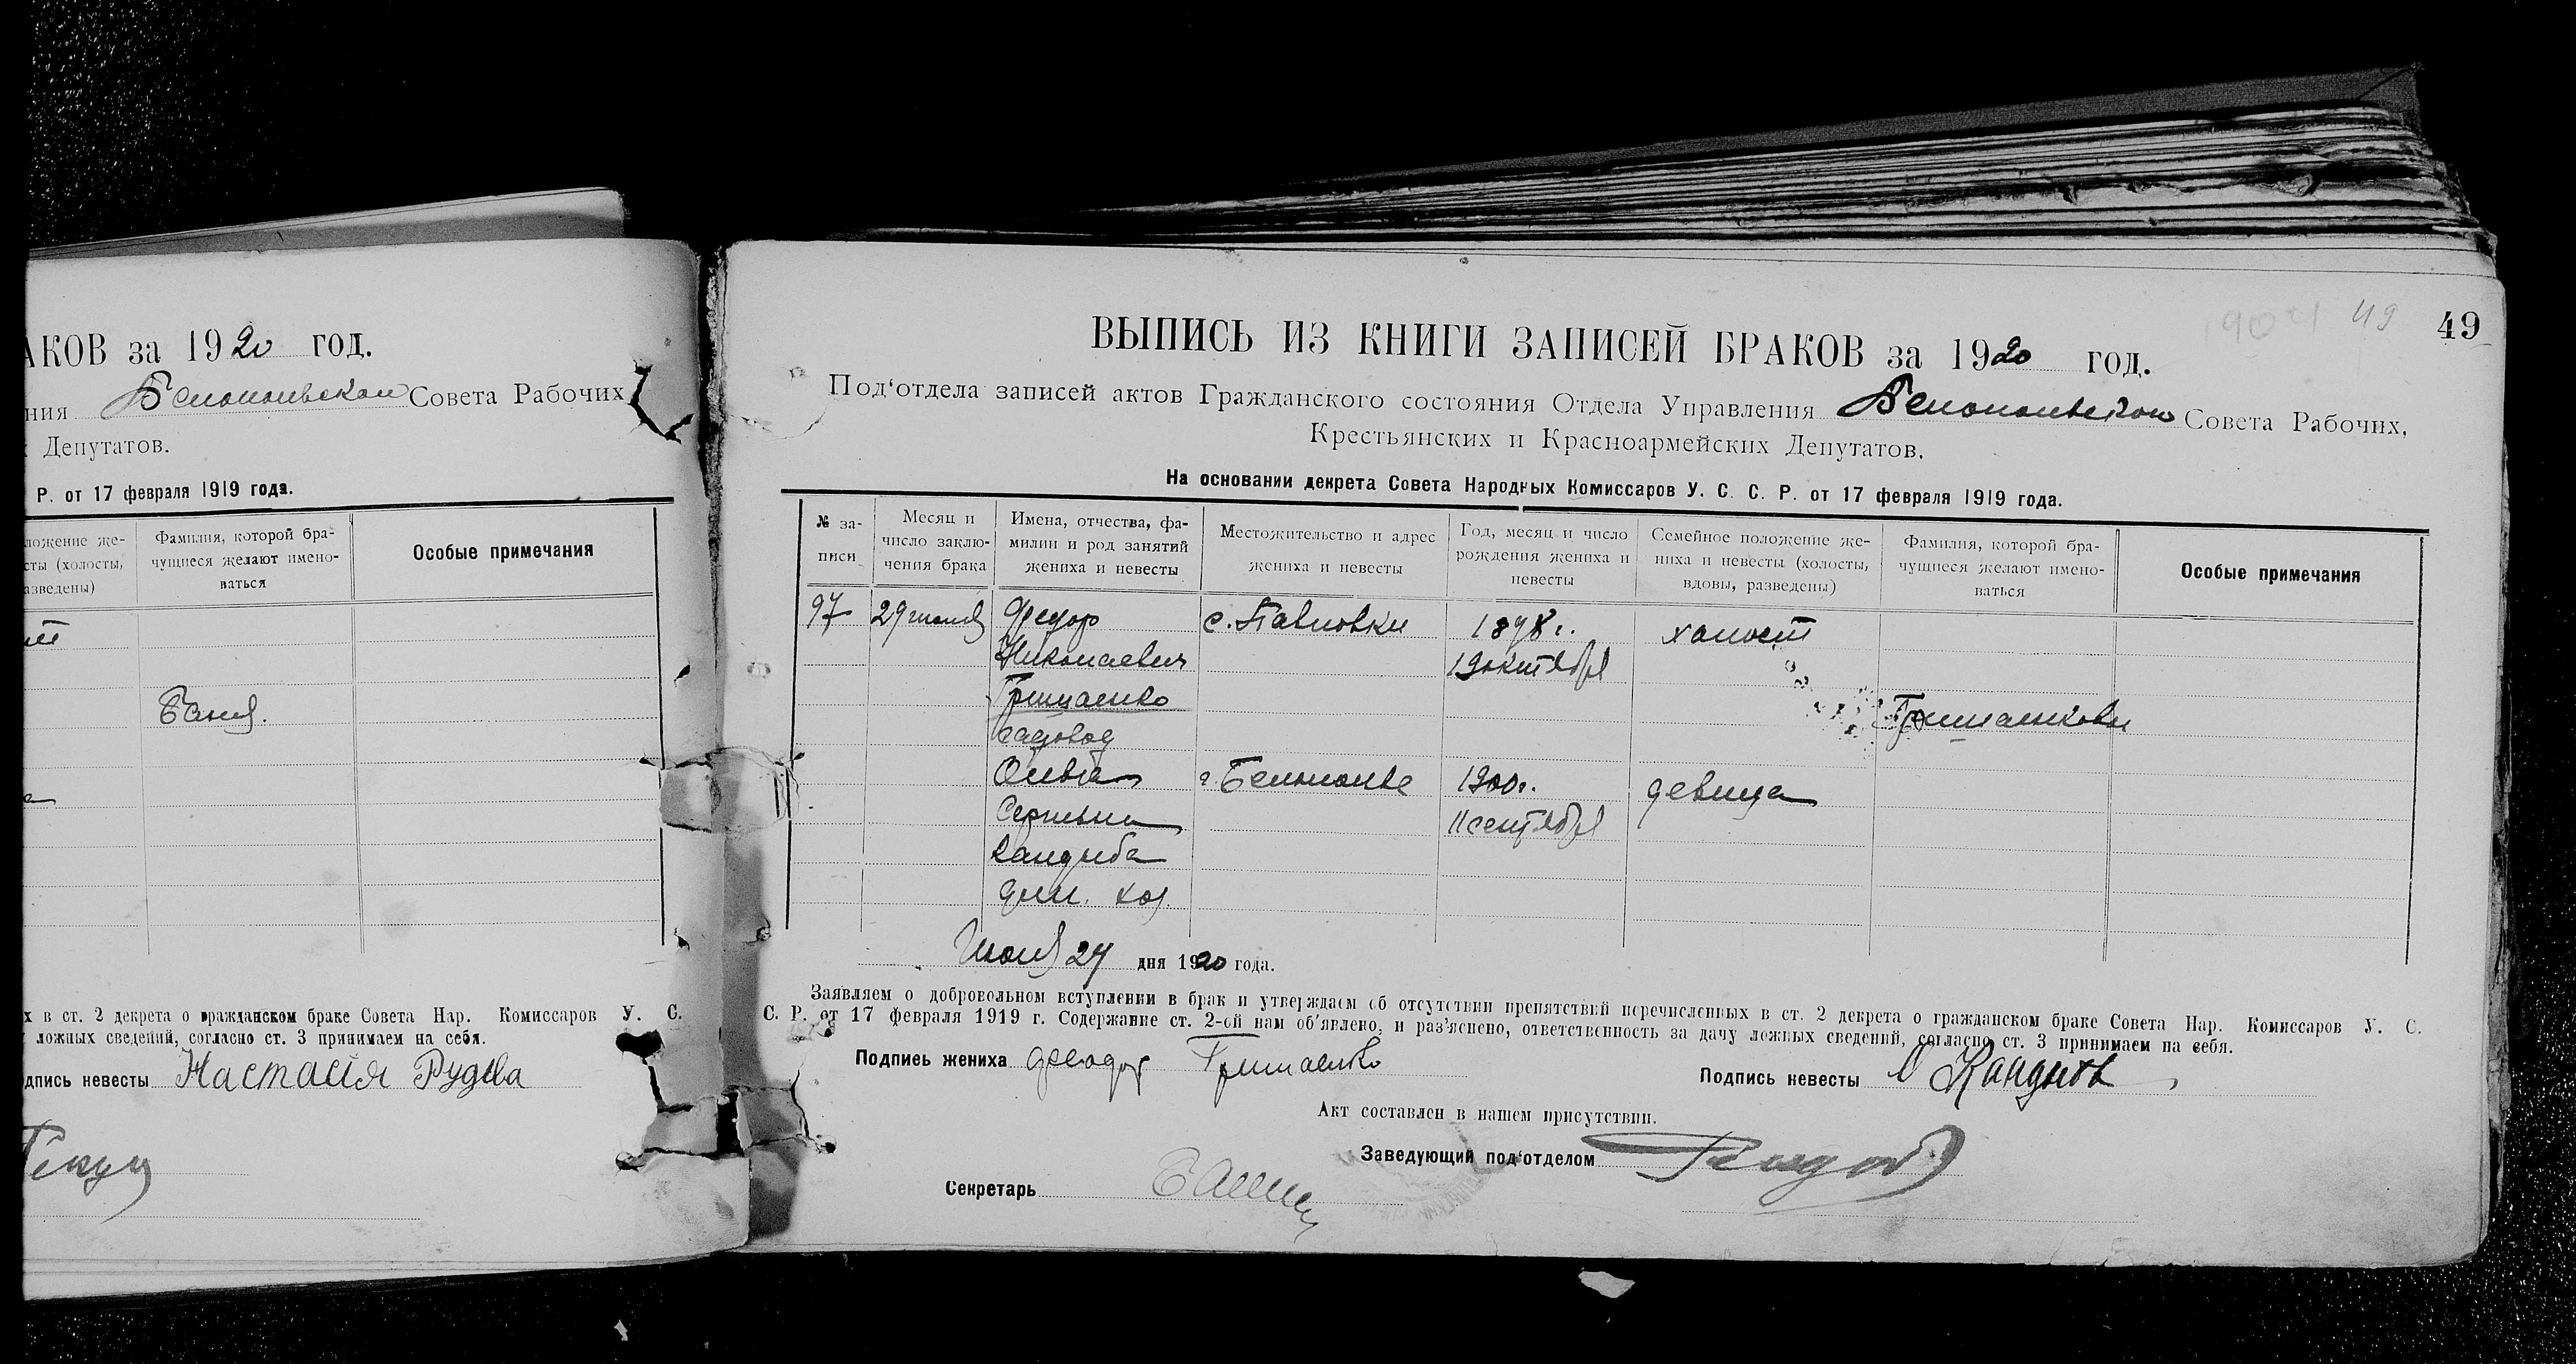 АКОВ за 1920 год.
ния Белопольском Совета Рабочих,
Депутатов.
Р. от 17 февраля 1919 года.
ложение же-
сты (холосты,
азведены)
Фамилия, которой бра-
чущиеся желают имено-
ваться
Особые примечания
х в ст. 2 декрета о гражданском браке Совета Нар. Комиссаров У. С.
ложных сведений, согласно ст. 3 принимаем на себя.
дпись невесты Настасия Рудева
49
49
ВЫПИСЬ ИЗ КНИГИ ЗАПИСЕЙ БРАКОВ за 1920 год.
Под'отдела записей актов Гражданского состояния Отдела Управления Белопольском Совета Рабочих,
Крестьянских и Красноармейских Депутатов.
На основании декрета Совета Народных Комиссаров У. С. С. Р. от 17 февраля 1919 года.
№ за-
писи
Месяц и
число заклю-
чения брака
Имена, отчества, фа-
милии и род занятий
жениха и невесты
Местожительство и адрес
жениха и невесты
Год, месяц и число
рождения жениха и
невесты
Семейное положение же-
ниха и невесты (холосты,
вдовы, разведены)
Фамилия, которой бра-
чущиеся желают имено-
ваться
Особые примечания
97 29 июля Федор с. Павловки 1898 г. холост
Николаевич 19 октября
Грицаенко
садовод
Ольга г. Белополье 1900 г. девица
Сергеевна 11 сентября
Кандыба
дом. хоз.
Июля 27 дня 1920 года.
Заявляем о добровольном вступлении в брак и утверждаем об отсутствии препятствий перечисленных в ст. 2 декрета о гражданском браке Совета Нар. Комиссаров У. С.
С. Р. от 17 февраля 1919 г. Содержание ст. 2-ой нам об'явлено, и раз'яснено, ответственность за дачу ложных сведений, согласно ст. 3 принимаем на себя.
Подпись жениха Феодор Грицаенко
Подпись невесты О Кандыба
Акт составлен в нашем присутствии.
Заведующий под'отделом
Секретарь